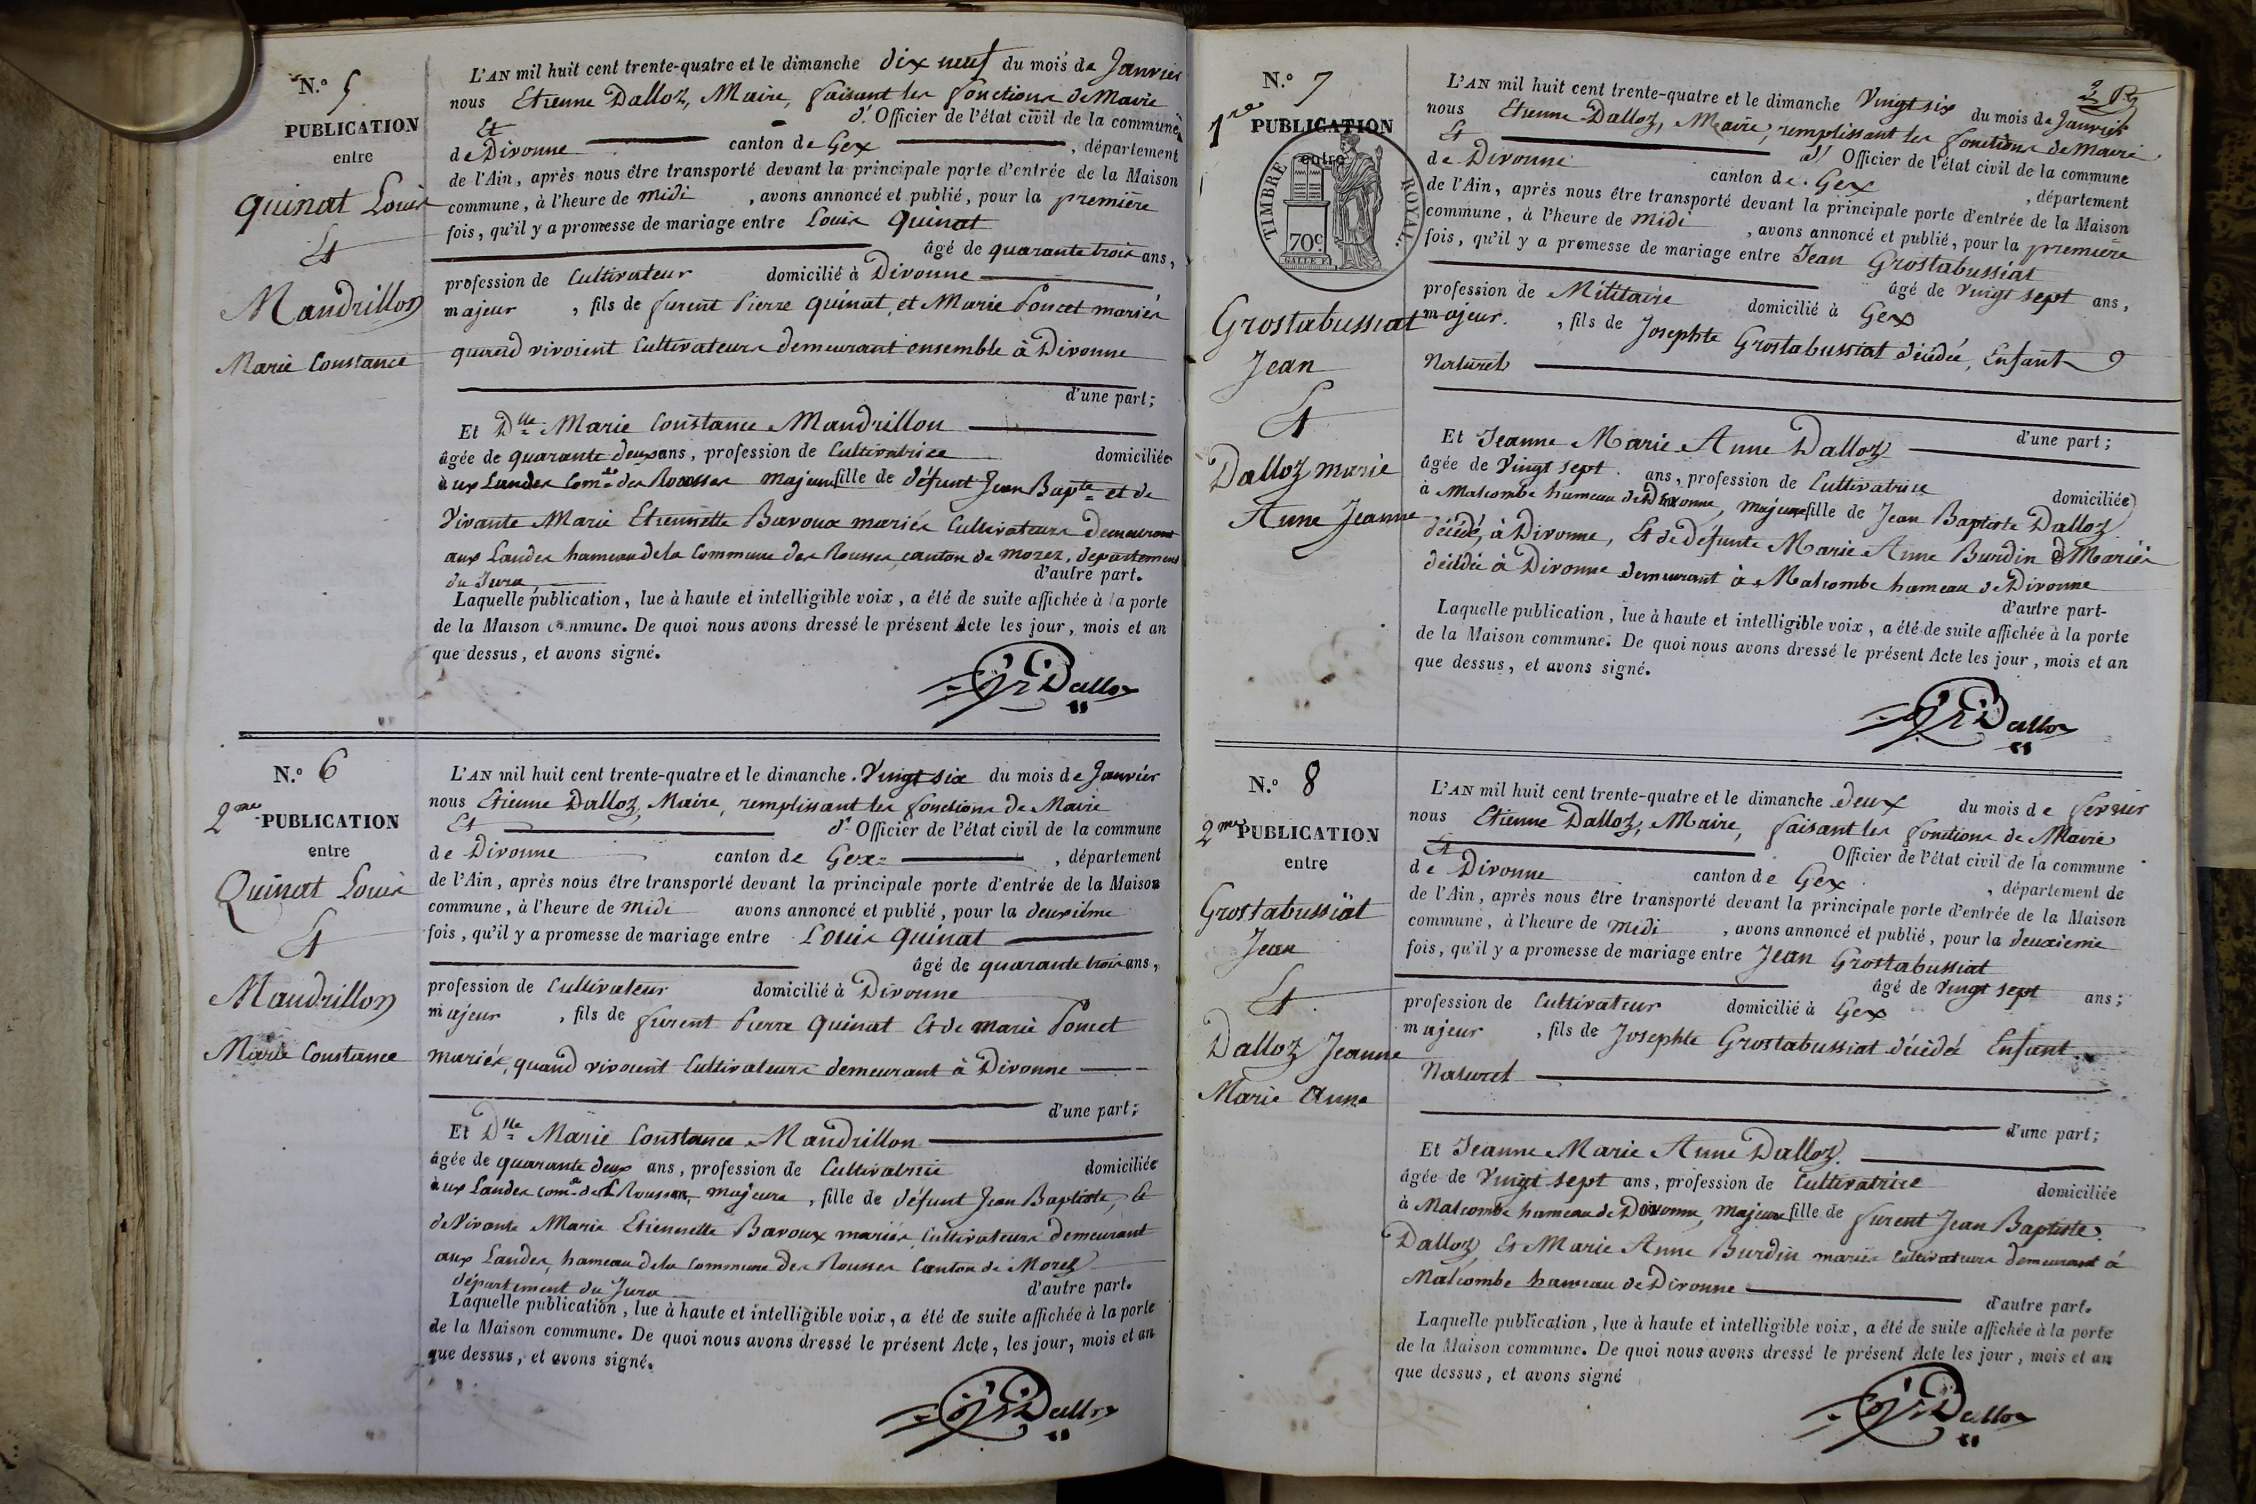 N.º 5
PUBLICATION
entre
Quinat Louis
Et
Mandrillon
Marie Constance
L'AN mil huit cent trente-quatre et le dimanche dix neuf du mois de Janvier
nous Etienne Dalloz, Maire, faisant les fonctions de Mairie
Et d' Officier de l'état civil de la commune
de Divonne canton de Gex , département
de l'Ain, après nous être transporté devant la principale porte d'entrée de la Maison
commune, à l'heure de midi , avons annoncé et publié, pour la première
fois, qu'il y a promesse de mariage entre Louis Quinat
âgé de quarante trois ans,
profession de Cultivateur domicilié à Divonne
majeur , fils de furent Pierre Quinat, et Marie Poncet mariés
quand vivoient Cultivateurs demeurant ensemble à Divonne
d'une part;
Et Dlle Marie Constance Mandrillon
âgée de quarante deux ans, profession de Cultivatrice domiciliée
aux Landes Com.e des Rousses majeure fille de défunt Jean Bapte et de
Vivante Marie Etiennette Bavoux mariés Cultivateurs demeurant
aux Landes hameau de la Commune des Rousses, canton de morez, département
du Jura d'autre part.
Laquelle publication, lue à haute et intelligible voix, a été de suite affichée à la porte
de la Maison commune. De quoi nous avons dressé le présent Acte les jour, mois et an
que dessus, et avons signé.
Dalloz
N.º 6
2me PUBLICATION
entre
Quinat Louis
Et
Mandrillon
Marie Constance
L'AN mil huit cent trente-quatre et le dimanche. Vingt six du mois de Janvier
nous Etienne Dalloz, Maire, remplissant les fonctions de Mairie
Et d' Officier de l'état civil de la commune
de Divonne canton de Gex , département
de l'Ain, après nous être transporté devant la principale porte d'entrée de la Maison
commune, à l'heure de midi avons annoncé et publié, pour la deuxième
fois, qu'il y a promesse de mariage entre Louis Quinat
âgé de quarante trois ans,
profession de Cultivateur domicilié à Divonne
majeur , fils de furent Pierre Quinat Et de marie Poncet
mariés, quand vivoient Cultivateurs demeurant à Divonne
d'une part;
Et Dlle Marie Constance Mandrillon
âgée de quarante deux ans, profession de Cultivatrice domiciliée
aux Landes com.e des Rousses, majeure , fille de défunt Jean Baptiste, Et
de Vivante Marie Etiennette Bavoux mariés, Cultivateurs demeurant
aux Landes, hameau de la Commune des Rousses Canton de Morez
département du Jura d'autre part.
Laquelle publication, lue à haute et intelligible voix, a été de suite affichée à la porte
de la Maison commune. De quoi nous avons dressé le présent Acte, les jour, mois et an
que dessus, et avons signé.
Dalloz
N.º 7
1re PUBLICATION
entre
TIMBRE ROYAL.
70c.
Grostabussiat
Jean
Et
Dalloz marie
Anne Jeanne
L'AN mil huit cent trente-quatre et le dimanche Vingt six du mois de Janvier
nous Etienne Dalloz, Maire, remplissant les fonctions de Mairie
Et d' Officier de l'état civil de la commune
de Divonne canton de Gex , département
de l'Ain, après nous être transporté devant la principale porte d'entrée de la Maison
commune, à l'heure de midi , avons annoncé et publié, pour la première
fois, qu'il y a promesse de mariage entre Jean Grostabussiat
âgé de Vingt sept ans,
profession de Militaire domicilié à Gex
majeur. , fils de Josephte Grostabussiat décédée, Enfant
Naturel
d'une part;
Et Jeanne Marie Anne Dalloz
âgée de Vingt sept ans, profession de Cultivatrice domiciliée
à Malcombe hameau de Divonne, majeure fille de Jean Baptiste Dalloz
décédé, à Divonne, Et de défunte Marie Anne Burdin Mariés
décédée à Divonne demeurant à Malcombe hameau de Divonne
d'autre part-
Laquelle publication, lue à haute et intelligible voix, a été de suite affichée à la porte
de la Maison commune. De quoi nous avons dressé le présent Acte les jour, mois et an
que dessus, et avons signé.
Dalloz
N.º 8
2me PUBLICATION
entre
Grostabussiat
Jean
Et
Dalloz Jeanne
Marie Anne
L'AN mil huit cent trente-quatre et le dimanche deux du mois de fevrier
nous Etienne Dalloz, Maire, faisant les fonctions de Mairie
Et Officier de l'état civil de la commune
de Divonne canton de Gex , département de
de l'Ain, après nous être transporté devant la principale porte d'entrée de la Maison
commune, à l'heure de midi , avons annoncé et publié, pour la deuxieme
fois, qu'il y a promesse de mariage entre Jean Grostabussiat
âgé de Vingt sept ans;
profession de Cultivateur domicilié à Gex
majeur , fils de Josephte Grostabussiat décédée Enfant
Naturel
d'une part;
Et Jeanne Marie Anne Dalloz.
âgée de Vingt sept ans, profession de Cultivatrice domiciliée
à Malcombe hameau de Divonne, majeure fille de furent Jean Baptiste
Dalloz, Et Marie Anne Burdin mariés Cultivateurs demeurant à
Malcombe hameau de Divonne
d'autre part.
Laquelle publication, lue à haute et intelligible voix, a été de suite affichée à la porte
de la Maison commune. De quoi nous avons dressé le présent Acte les jour, mois et an
que dessus, et avons signé
Dalloz